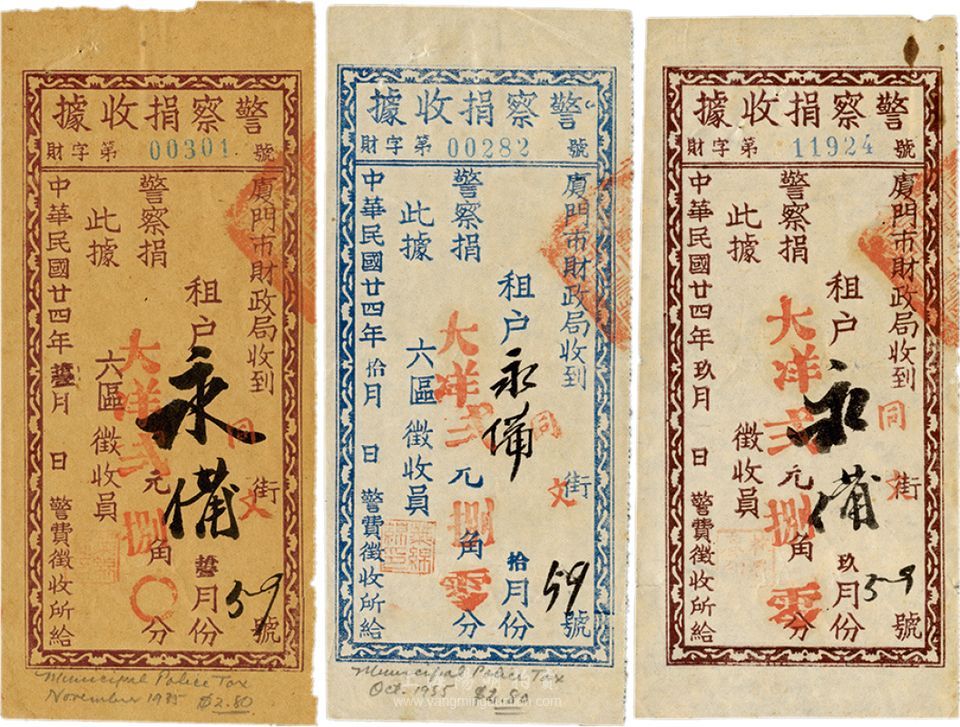 警察捐收據
財字第 00301 號
廈門市財政局收到
同文街 59 號
租户 永備
月份
警察捐 大洋弍元捌角〇分
此據
六區徵收員
中華民國廿四年 月 日 警費徵收所給
Municipal Police Tax
November 1935 $2.80
警察捐收據
財字第 00282 號
廈門市財政局收到
同文街 59 號
租户 永備
拾月份
警察捐 大洋弍元捌角零分
此據
六區徵收員
中華民國廿四年拾月 日 警費徵收所給
Municipal Police Tax
Oct. 1935 $2.80
警察捐收據
財字第 11924 號
廈門市財政局收到
同文街 59 號
租户 永備
玖月份
警察捐 大洋弍元捌角零分
此據
徵收員
中華民國廿四年玖月 日 警費徵收所給